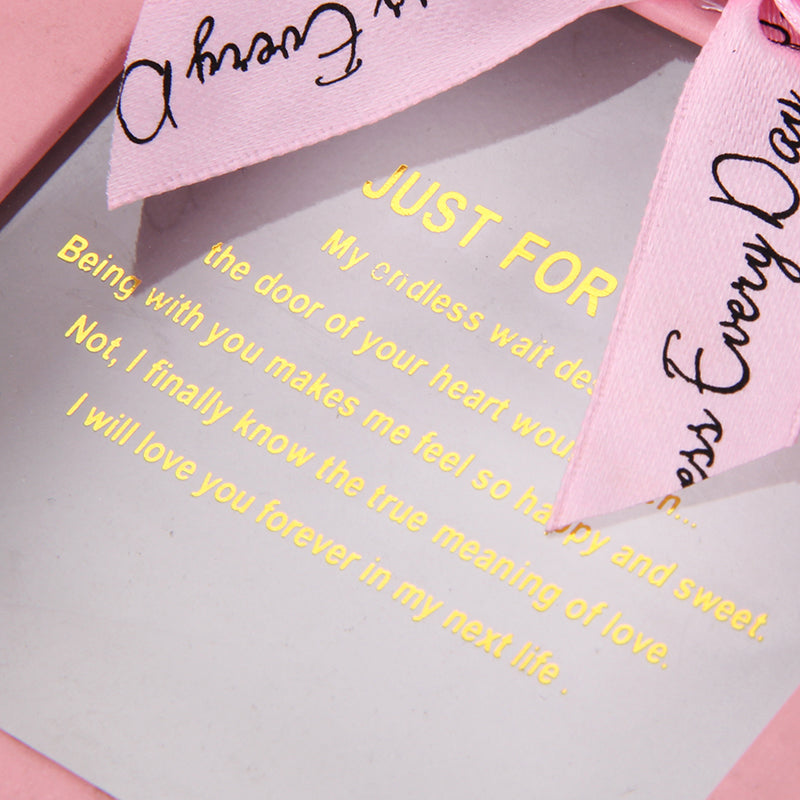 JUST FOR
My endless wait
the door of your heart
Being with you makes me feel so happy and sweet.
Not, I finally know the true meaning of love.
I will love you forever in my next life .
Every D
ess Every Day